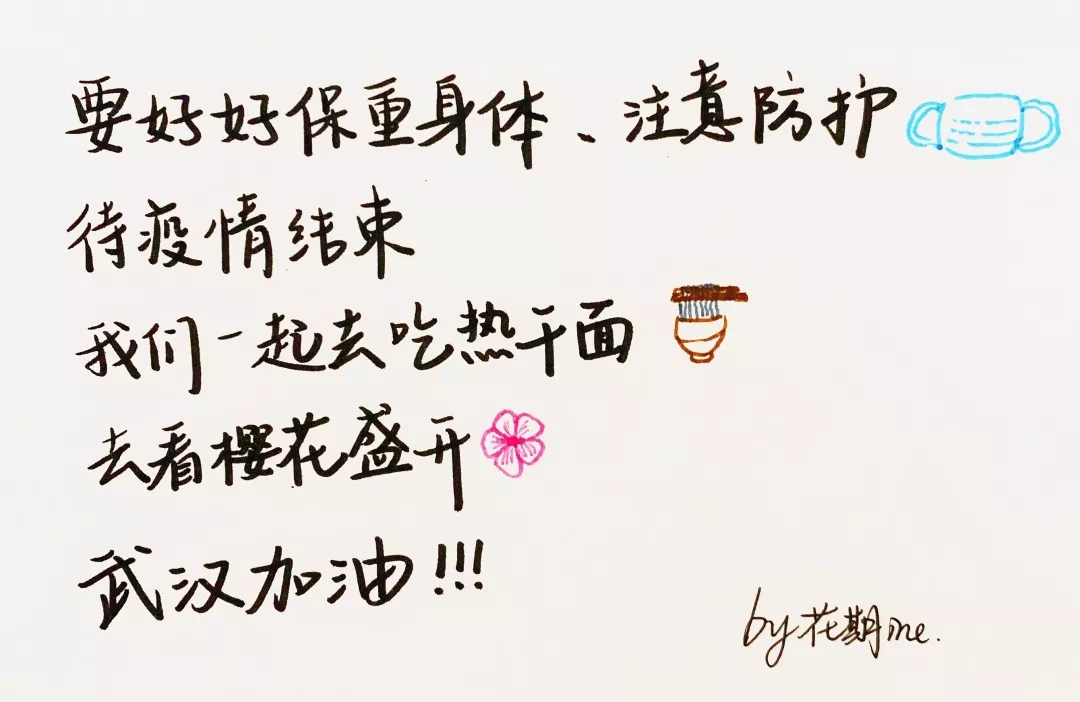 要好好保重身体、注意防护
待疫情结束
我们一起去吃热干面
去看樱花盛开
武汉加油!!!
by花期me.